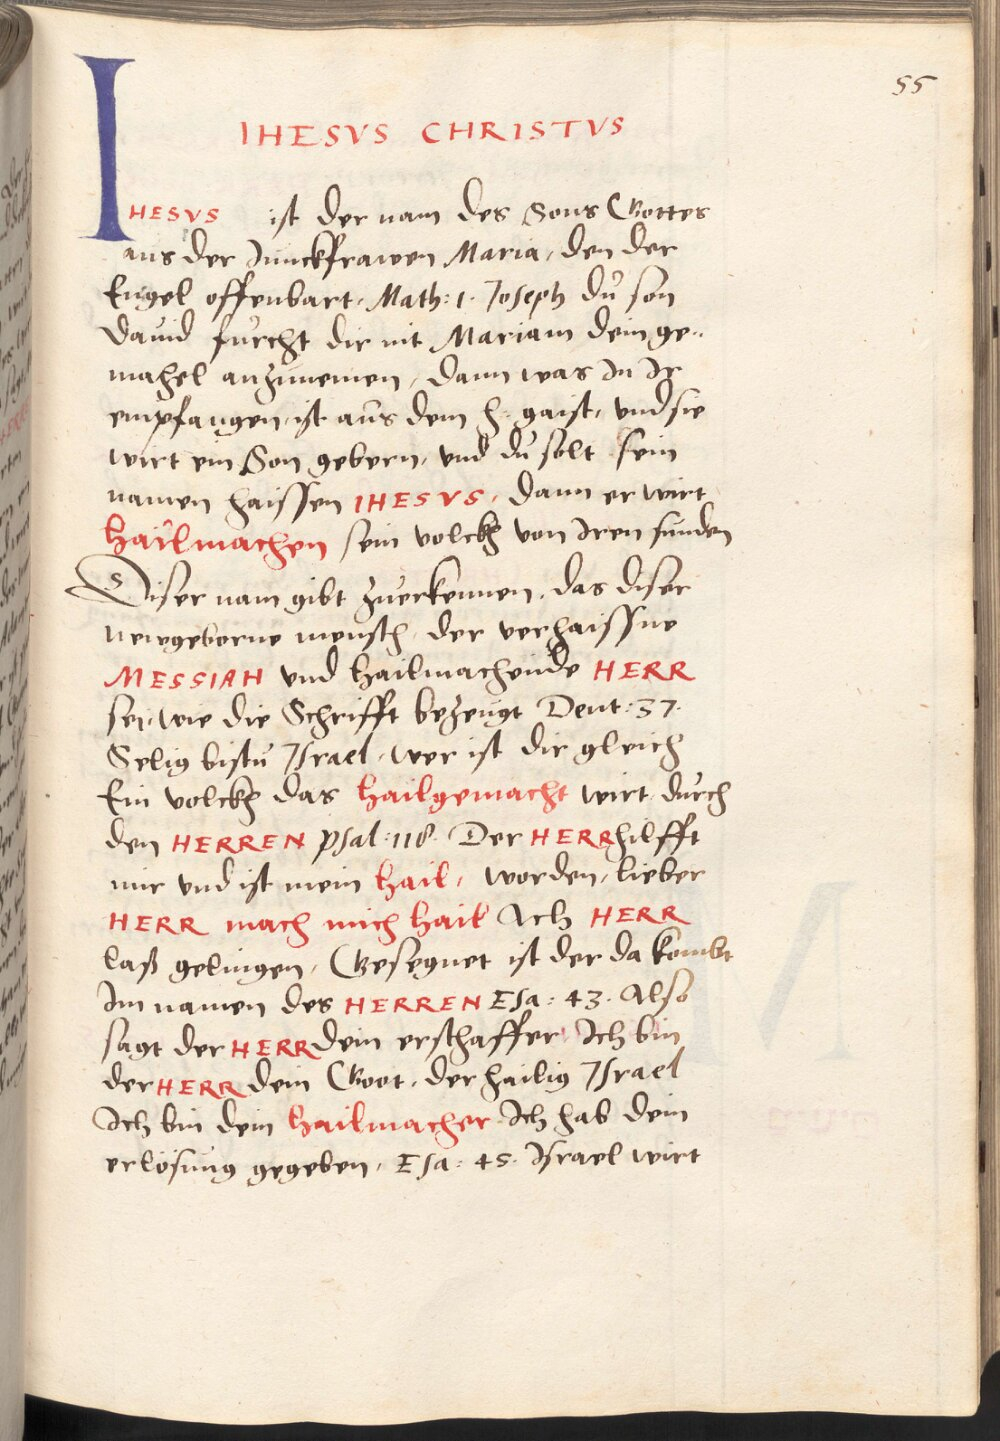 55
IHESVS CHRISTVS
IHESVS ist der nam des Sons Gottes
aus der Junckfrawen Maria, den der
Engel offenbart, Math: 1. Joseph du son
Dauid furcht dir nit Mariam dein ge-
mahel anzunemen, Dann was In Ir
empfangen ist aus dem h. gaist, vnd sie
wirt ein Son gebern, vnd du solt sein
namen haissen IHESVS, Dann er wirt
Hailmachen sein volckh von Iren sunden
Diser nam gibt zuerkennen, das diser
newgeborne mensch, der verhaissne
MESSIAH vnd Hailmachende HERR
sei, wie die Schrifft bezeugt Deut: 37.
Selig bistu Israel, wer ist dir gleich
Ein volckh das Hailgemacht wirt durch
den HERREN psal: 118. Der HERR hilfft
mir vnd ist mein Hail, worden, lieber
HERR mach mich Hail Ach HERR
laß gelingen, Gesegnet ist der da kombt
Im namen des HERREN ESa: 43. Also
sagt der HERR dein erschaffer Ich bin
der HERR dein Gott, der hailig Israel
Ich bin dein Hailmacher Ich hab dein
erlösung gegeben, ESa: 45. Israel wirt